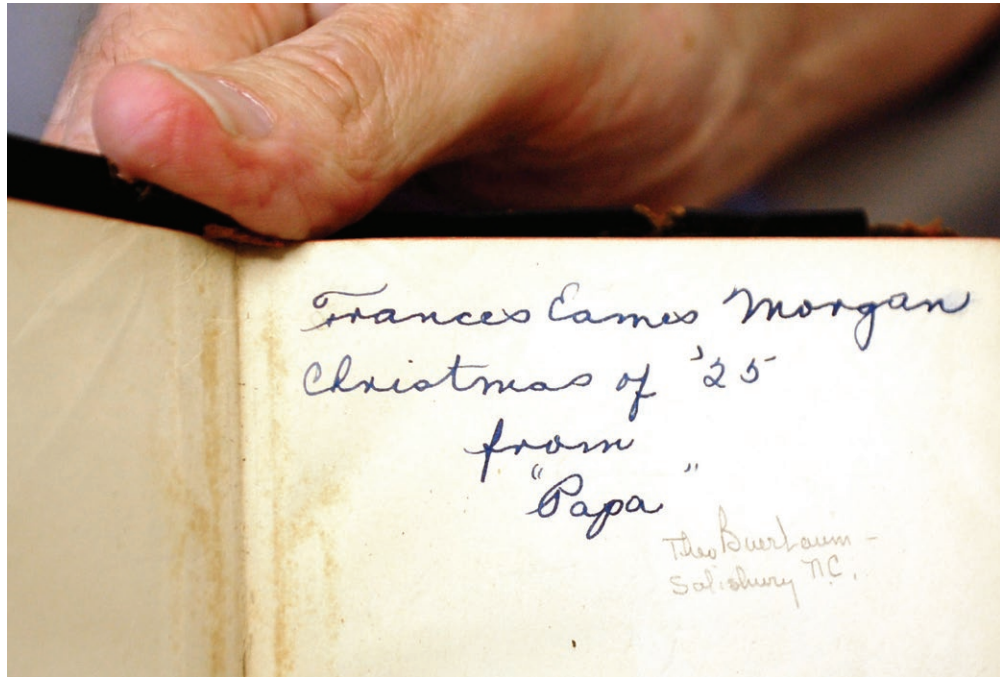 Frances Eames Morgan
Christmas of '25
from
"Papa"
Theo Buerbaum -
Salisbury N.C.